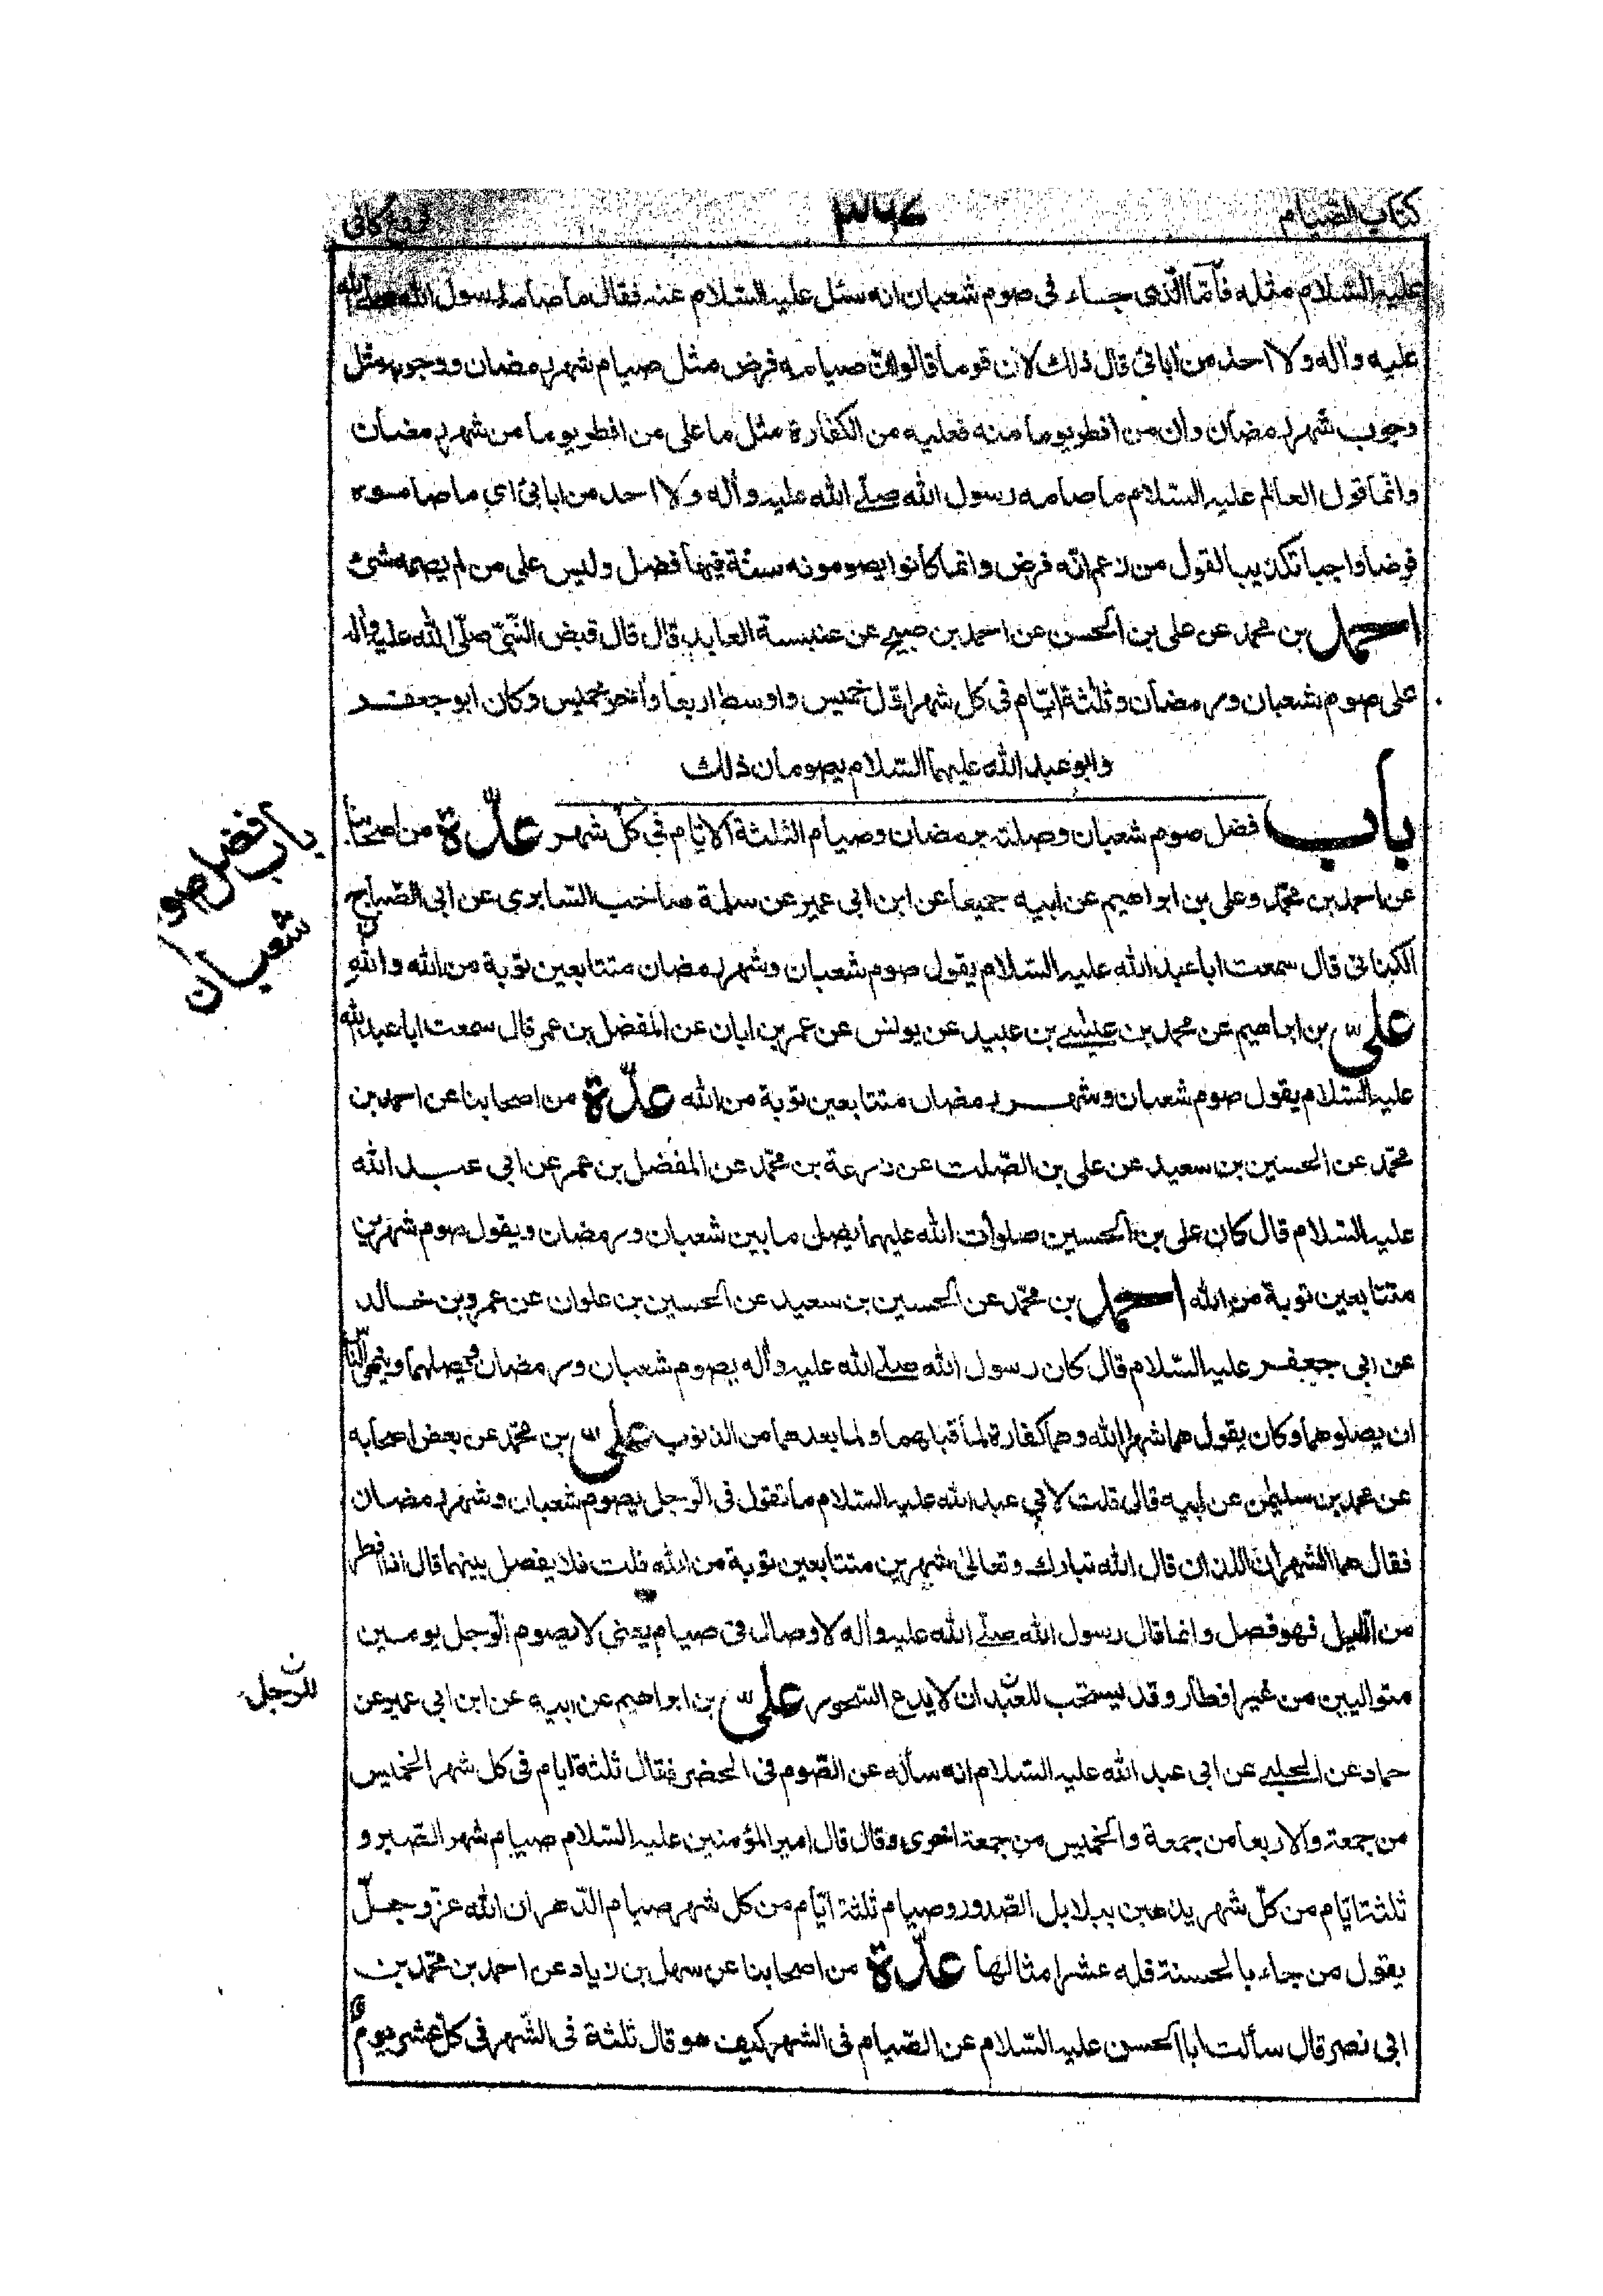 كتاب الصيام ٣٦٧ فروع كافى
عليه السلام مثله فأمّا الّذى جاء فى صوم شعبان انه سئل عليه السّلام عنه فقال ما صامه رسول الله صلّى الله
عليه وأله ولا احد من أبائى قال ذلك لأن قوما قالوا انّ صيامه فرض مثل صيام شهر رمضان ووجوبه مثل
وجوب شهر رمضان وان من افطر يوما منه فعليه من الكفّارة مثل ما على من افطر يوما من شهر رمضان
وانّما قول العالم عليه السّلام ما صامه رسول الله صلّى الله عليه وأله ولا احد من ابائى اى ما صاموه
فرضا واجبا تكذيبا لقول من زعم انّه فرض وانّما كانوا يصومونه سنّة فيها فضل وليس على من لم يصمه شئ
احمد بن محمد عن على بن الحسن عن احمد بن صبيح عن عنبسة العابد قال قال قبض النّبىّ صلّى الله عليه وأله
على صوم شعبان ورمضان وثلثة ايّام فى كل شهر اوّل خميس واوسط اربعا وأخر خميس وكان ابو جعفر
وابو عبد الله عليهما السّلام يصومان ذلك
باب فضل صوم شعبان وصلته برمضان وصيام الثلثة الايّام فى كلّ شهر عدّة من اصحابنا
باب فضل صو
شعبان
عن احمد بن محمّد وعلى بن ابراهيم عن ابيه جميعا عن ابن ابى عمير عن سلمة صاحب السّابرى عن ابى الصّباح
الكنانى قال سمعت ابا عبد الله عليه السّلام يقول صوم شعبان وشهر رمضان متتابعين توبة من الله والله
علىّ بن ابراهيم عن محمد بن عيسى بن عبيد عن يونس عن عمر بن ابان عن المفضل بن عمر قال سمعت ابا عبد الله
عليه السّلام يقول صوم شعبان وشهر رمضان متتابعين توبة من الله عدّة من اصحابنا عن احمد بن
محمّد عن الحسين بن سعيد عن على بن الصّلت عن زرعة بن محمّد عن المفضل بن عمر عن ابى عبد الله
عليه السّلام قال كان على بن الحسين صلوات الله عليهما يصل ما بين شعبان ورمضان ويقول صوم شهرين
متتابعين توبة من الله احمد بن محمّد عن الحسين بن سعيد عن الحسين بن علوان عن عمرو بن خالد
عن ابى جعفر عليه السّلام قال كان رسول الله صلّى الله عليه وأله يصوم شعبان ورمضان يصلهما وينهى النّاس
ان يصلوهما وكان يقول هما شهرا الله وهما كفارة لما قبلهما ولما بعدهما من الذنوب علىّ بن محمّد عن بعض اصحابه
عن محمد بن سليمن عن ابيه قال قلت لابى عبد الله عليه السّلام ما تقول فى الرّجل يصوم شعبان وشهر رمضان
فقال هما الشهران اللذان قال الله تبارك وتعالى شهرين متتابعين توبة من الله قلت فلا يفصل بينهما قال اذا افطر
من اللّيل فهو فصل وانما قال رسول الله صلّى الله عليه وأله لا وصال فى صيام يعنى لا يصوم الرّجل يومين
متواليين من غير افطار وقد يستحب للعبد ان لا يدع السّحور علىّ بن ابراهيم عن ابيه عن ابن ابى عمير عن
للرّجل
حماد عن الحلبى عن ابى عبد الله عليه السّلام انه سأله عن الصّوم فى الحضر فقال ثلثة ايام فى كل شهر الخميس
من جمعة والاربعا من جمعة والخميس من جمعة اخرى وقال قال امير المؤمنين عليه السّلام صيام شهر الصّبر و
ثلثة ايّام من كلّ شهر يذهبن ببلابل الصّدور وصيام ثلثة ايّام من كل شهر صيام الدّهر ان الله عزّ وجلّ
يقول من جاء بالحسنة فله عشر امثالها عدّة من اصحابنا عن سهل بن زياد عن احمد بن محمّد بن
ابى نصر قال سألت ابا الحسن عليه السّلام عن الصّيام فى الشهر كيف هو قال ثلثة فى الشّهر فى كل عشر يوم